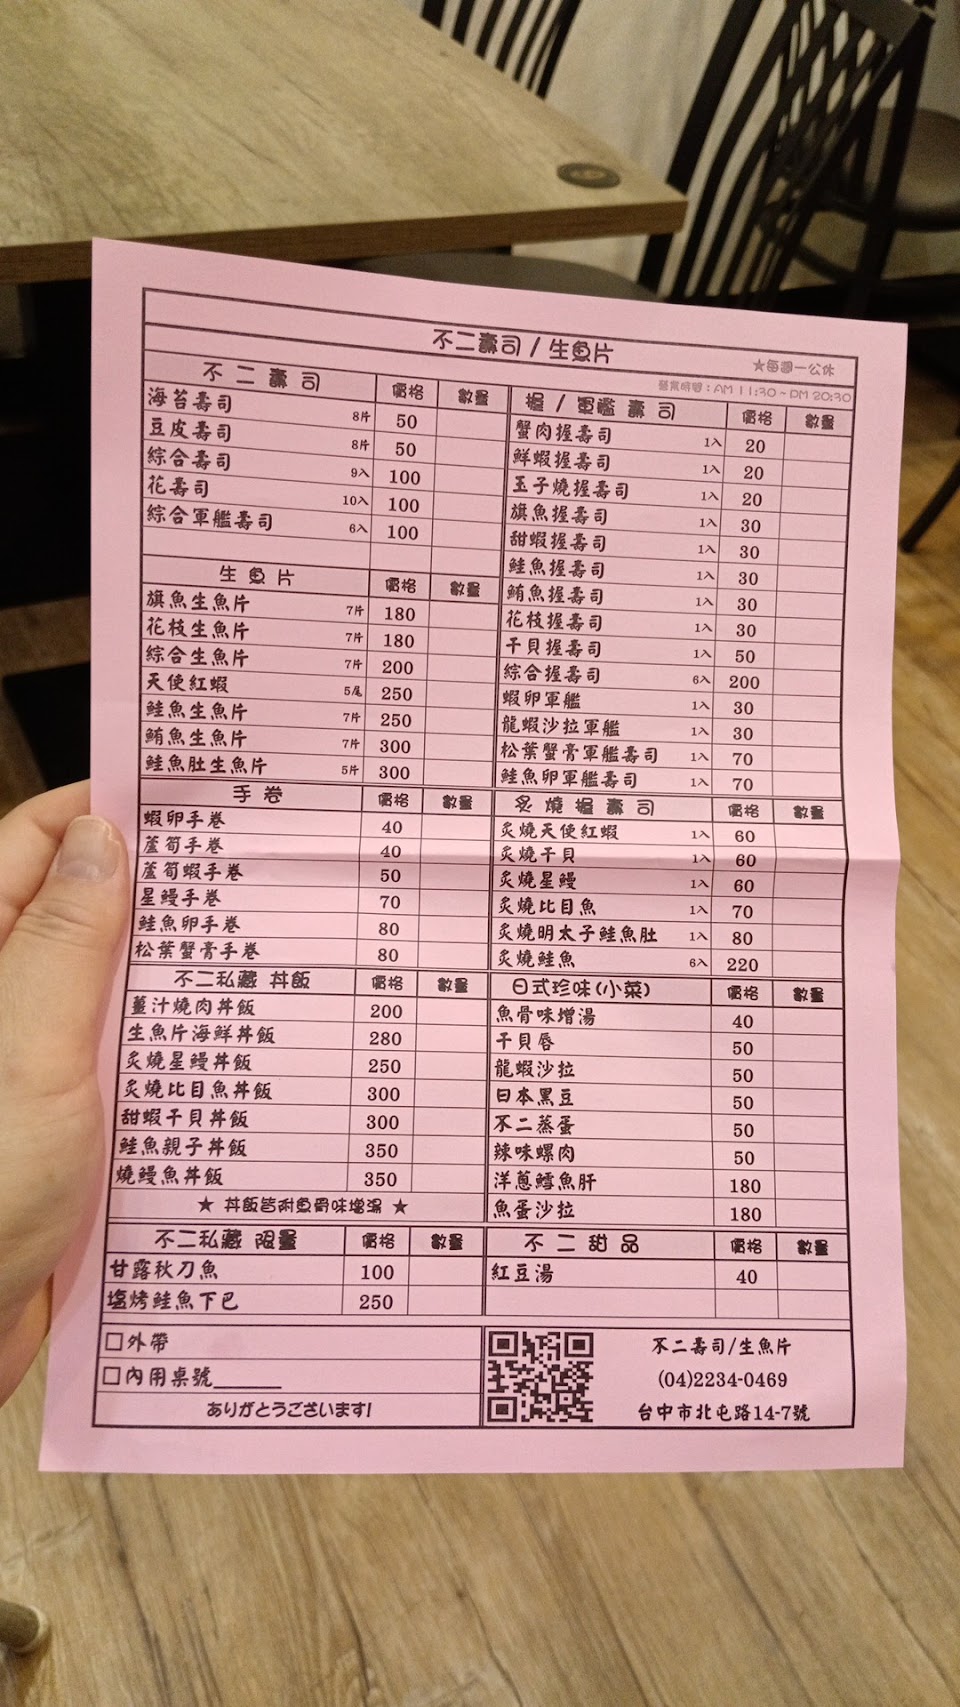 不二壽司 / 生魚片
★每週一公休
營業時間：AM 11:30 ~ PM 20:30
不二壽司 價格 數量
海苔壽司 8片 50
豆皮壽司 8片 50
綜合壽司 9入 100
花壽司 10入 100
綜合軍艦壽司 6入 100
生魚片 價格 數量
旗魚生魚片 7片 180
花枝生魚片 7片 180
綜合生魚片 7片 200
天使紅蝦 5尾 250
鮭魚生魚片 7片 250
鮪魚生魚片 7片 300
鮭魚肚生魚片 5片 300
手卷 價格 數量
蝦卵手卷 40
蘆筍手卷 40
蘆筍蝦手卷 50
星鰻手卷 70
鮭魚卵手卷 80
松葉蟹膏手卷 80
不二私藏 丼飯 價格 數量
薑汁燒肉丼飯 200
生魚片海鮮丼飯 280
炙燒星鰻丼飯 250
炙燒比目魚丼飯 300
甜蝦干貝丼飯 300
鮭魚親子丼飯 350
燒鰻魚丼飯 350
★ 丼飯皆附魚骨味增湯 ★
不二私藏 限量 價格 數量
甘露秋刀魚 100
塩烤鮭魚下巴 250
握 / 軍艦 壽司 價格 數量
蟹肉握壽司 1入 20
鮮蝦握壽司 1入 20
玉子燒握壽司 1入 20
旗魚握壽司 1入 30
甜蝦握壽司 1入 30
鮭魚握壽司 1入 30
鮪魚握壽司 1入 30
花枝握壽司 1入 30
干貝握壽司 1入 50
綜合握壽司 6入 200
蝦卵軍艦 1入 30
龍蝦沙拉軍艦 1入 30
松葉蟹膏軍艦壽司 1入 70
鮭魚卵軍艦壽司 1入 70
炙燒握壽司 價格 數量
炙燒天使紅蝦 1入 60
炙燒干貝 1入 60
炙燒星鰻 1入 60
炙燒比目魚 1入 70
炙燒明太子鮭魚肚 1入 80
炙燒鮭魚 6入 220
日式珍味(小菜) 價格 數量
魚骨味增湯 40
干貝唇 50
龍蝦沙拉 50
日本黑豆 50
不二蒸蛋 50
辣味螺肉 50
洋蔥鱈魚肝 180
魚蛋沙拉 180
不二甜品 價格 數量
紅豆湯 40
□外帶
□內用桌號______
ありがとうございます!
不二壽司/生魚片
(04)2234-0469
台中市北屯路14-7號